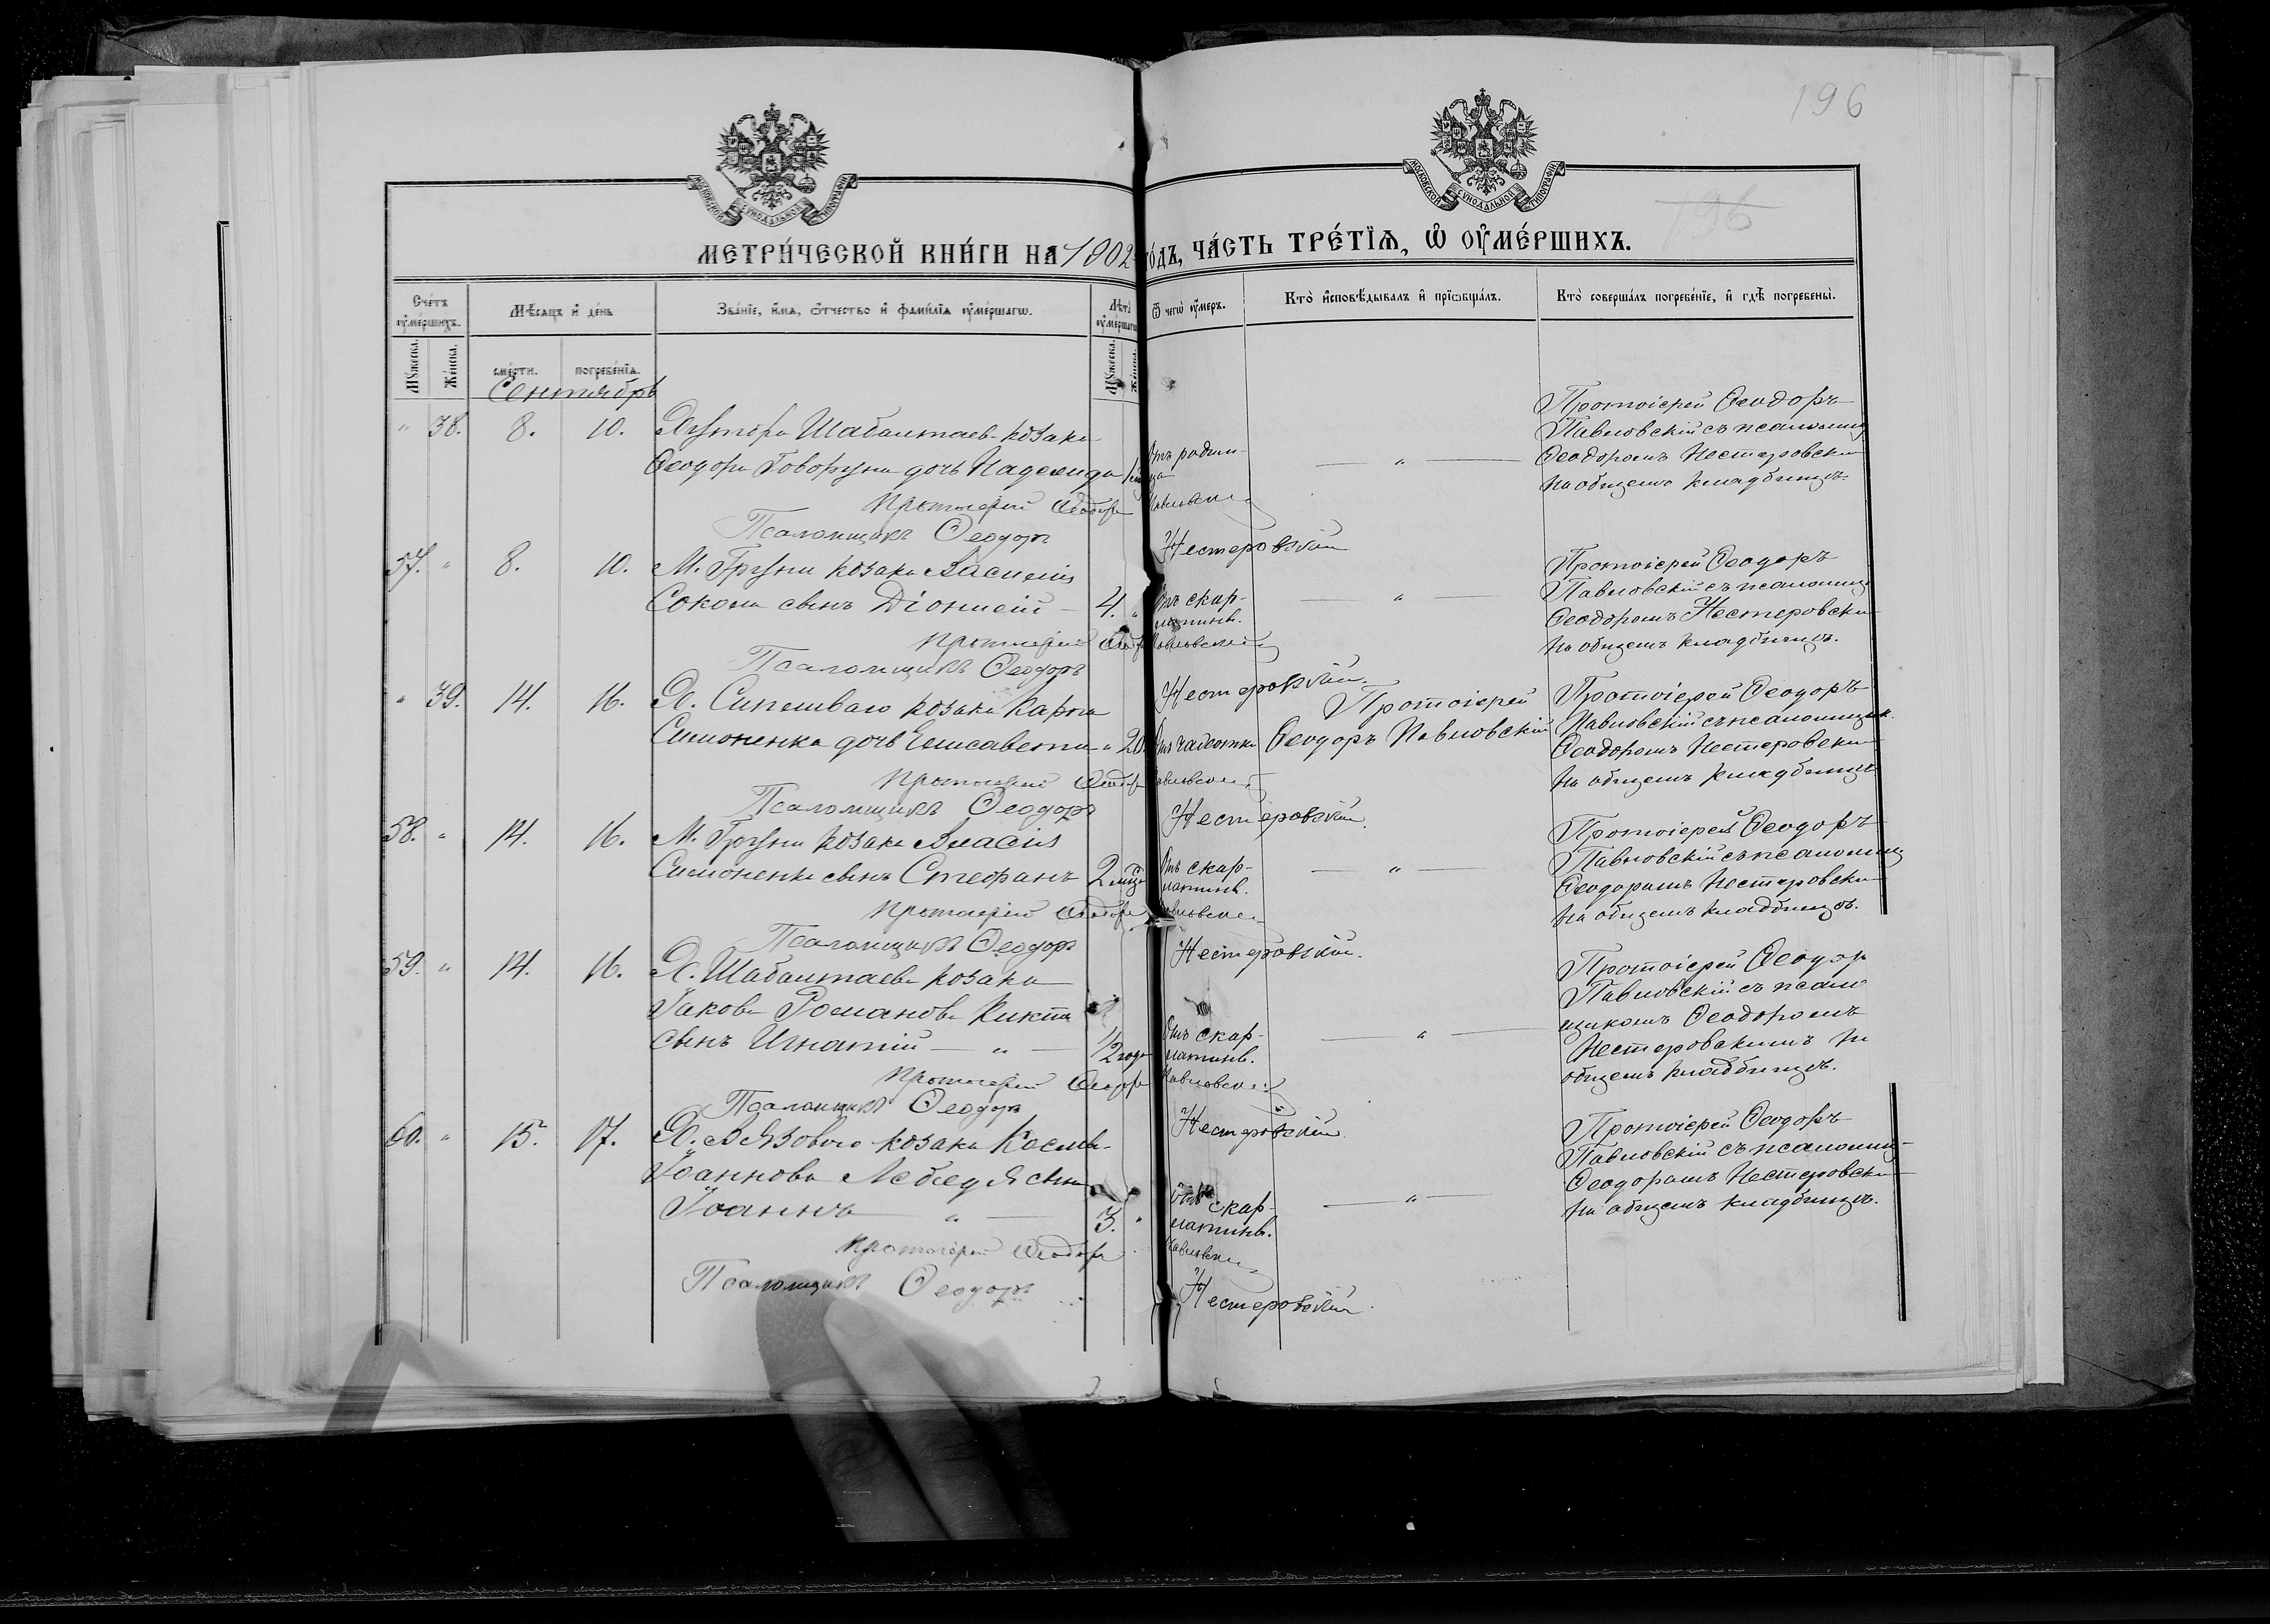 196
196
МОСКОВСКОЙ СѴНОДАЛЬНОЙ ТИПОГРАФІИ
МОСКОВСКОЙ СѴНОДАЛЬНОЙ ТИПОГРАФІИ
МЕТРИ́ЧЕСКОЙ КНИ́ГИ НА 1902 го́дъ, ЧА́СТЬ ТРЕ́ТІѦ, Ѽ ОУ҆МЕ́РШИХЪ.
Сче́тъ оу҆ме́ршихъ.
Мѣ́сяцъ и҆ де́нь
Зва́нїе, и҆́мѧ, ѻ҆́тчество и҆ фами́лїѧ оу҆ме́ршагѡ.
Лѣ́та оу҆ме́ршагѡ
Ѿ чегѡ̀ оу҆́меръ.
Кто̀ и҆сповѣ́дывалъ и҆ прїѡбща́лъ.
Кто̀ соверша́лъ погребе́нїе, и҆ гдѣ̀ погребены̀.
Мꙋ́жеска.
Же́нска.
сме́рти.
погребе́нїѧ.
Мꙋ́жеска.
Же́нска.
Сентябрь
" 38. 8. 10. Хутора Шабалтаева козака
Ѳеодора Говоруна дочь Надежда
Отъ родим-
ца
— " —
Протоіерей Ѳеодоръ
Павловскій съ псаломщ
Ѳеодоромъ Нестеровски
на общемъ кладбищѣ.
Протоіерей Ѳеодоръ Павловскій
Псаломщикъ Ѳеодоръ Нестеровскій
57. " 8. 10. М. Груни козака Василія
Сокола сынъ Діонисій — 4. "
Отъ скар-
латины.
— " —
Протоіерей Ѳеодоръ
Павловскій съ псаломщ
Ѳеодоромъ Нестеровски
на общемъ кладбищѣ.
Протоіерей Ѳеодоръ Павловскій
Псаломщикъ Ѳеодоръ Нестеровскій.
" 39. 14. 16. Х. козака Карпа
Симоненка дочь Елисавета " 20
Отъ чахотки
Протоіерей
Ѳеодоръ Павловскій
Протоіерей Ѳеодоръ
Павловскій съ псаломщик.
Ѳеодоромъ Нестеровски
на общемъ кладбищѣ
Протоіерей Ѳеодоръ Павловскій
Псаломщикъ Ѳеодоръ Нестеровскій.
58. " 14. 16. М. Груни козака Власія
Симоненка сынъ Стефанъ 2
Отъ скар-
латины.
— " —
Протоіерей Ѳеодоръ
Павловскій съ псаломщ
Ѳеодоромъ Нестеровски
на общемъ кладбищѣ.
Протоіерей Ѳеодоръ Павловскій
Псаломщикъ Ѳеодоръ Нестеровскій.
59. " 14. 16. Х. Шабалтаева козака
Іакова Романова Кикта
сынъ Игнатій — " — 1/2 года
Отъ скар-
латины.
— " —
Протоіерей Ѳеодор
Павловскій съ псало
щикомъ Ѳеодоромъ
Нестеровскимъ на
общемъ кладбищѣ.
Протоіерей Ѳеодоръ Павловскій
Псаломщикъ Ѳеодоръ Нестеровскій
60. " 15. 17. Х. Вязоваго козака Космы
Іоаннова Лебедя сынъ
Іоаннъ — " — 3. "
Отъ скар-
латины.
— " —
Протоіерей Ѳеодоръ
Павловскій съ псаломщ-
Ѳеодоромъ Нестеровски
на общемъ кладбищѣ.
Протоіерей Ѳеодоръ Павловскій
Псаломщикъ Ѳеодоръ Нестеровскій.